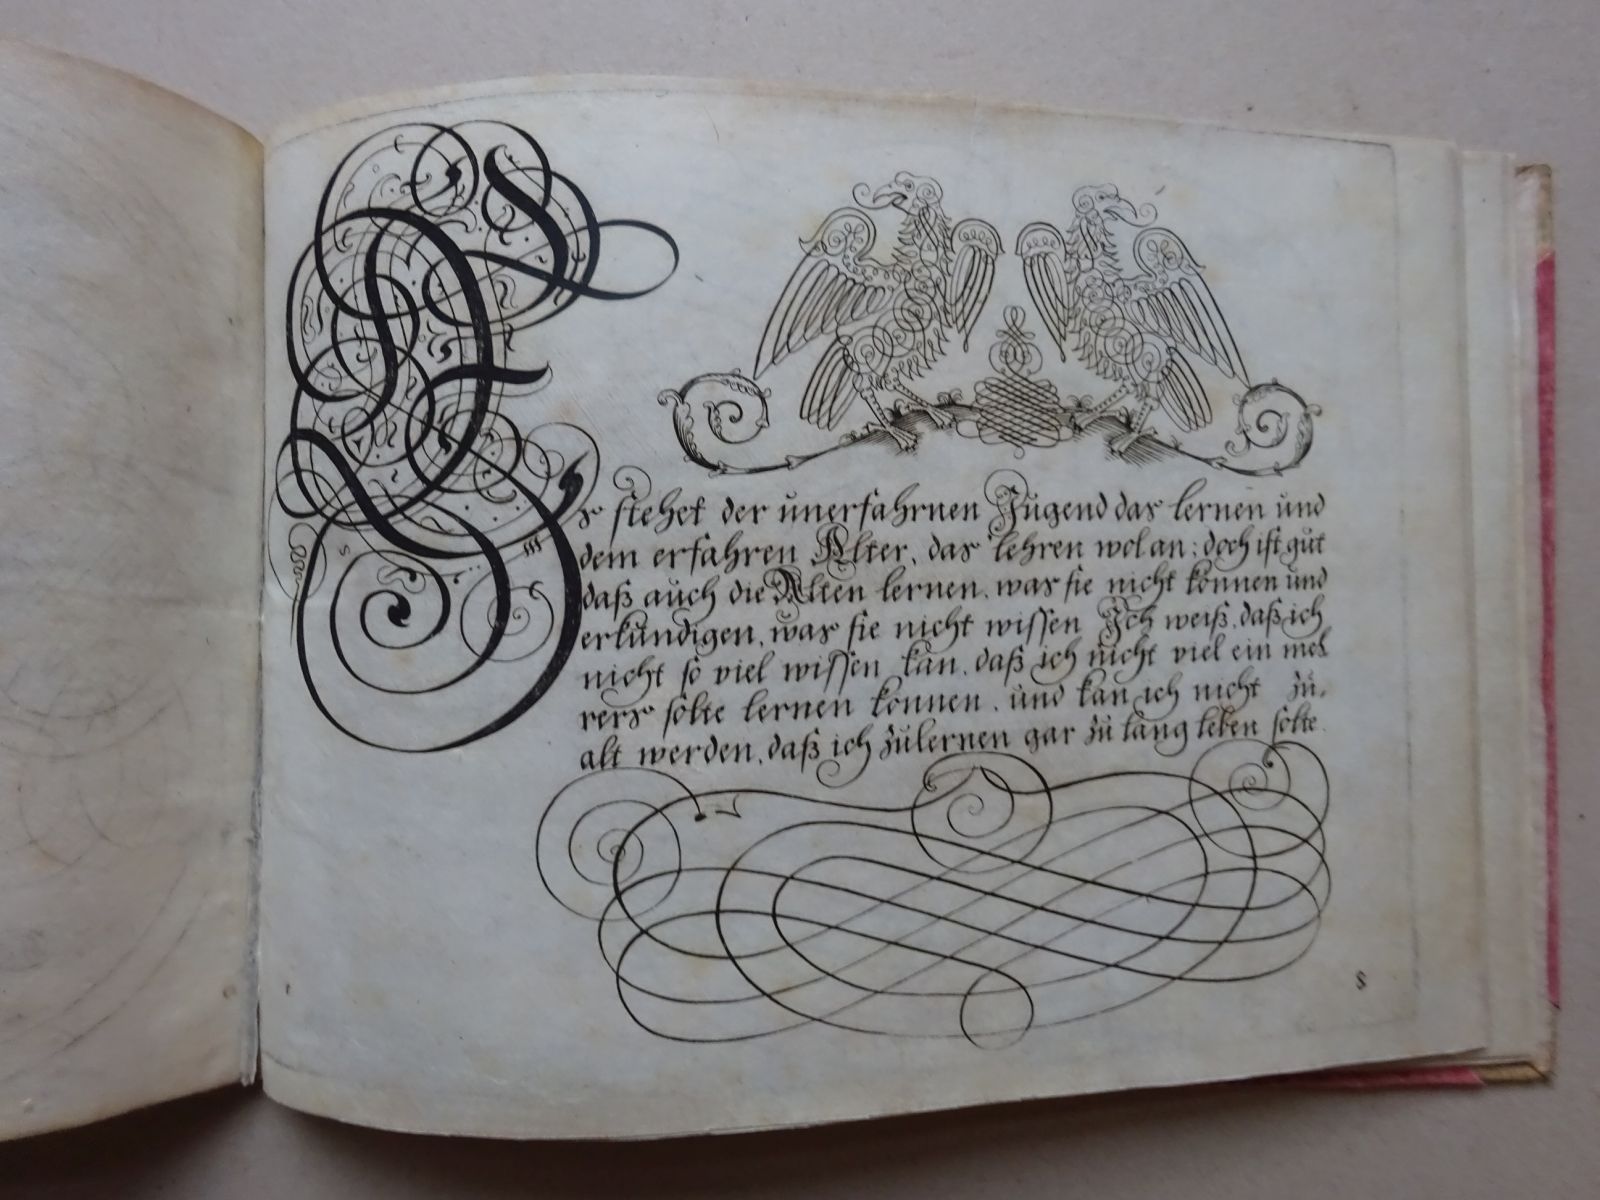 Es stehet der unerfahrnen Jugend das lernen und
dem erfahren Alter, das lehren wol an: doch ist gut
daß auch die Alten lernen, was sie nicht können und
erkundigen, was sie nicht wissen Ich weiß, daß ich
nicht so viel wissen kan, daß ich nicht viel ein meh
rers solte lernen können, und kan ich nicht zu,
alt werden, daß ich zulernen gar zu lang leben solte.
8